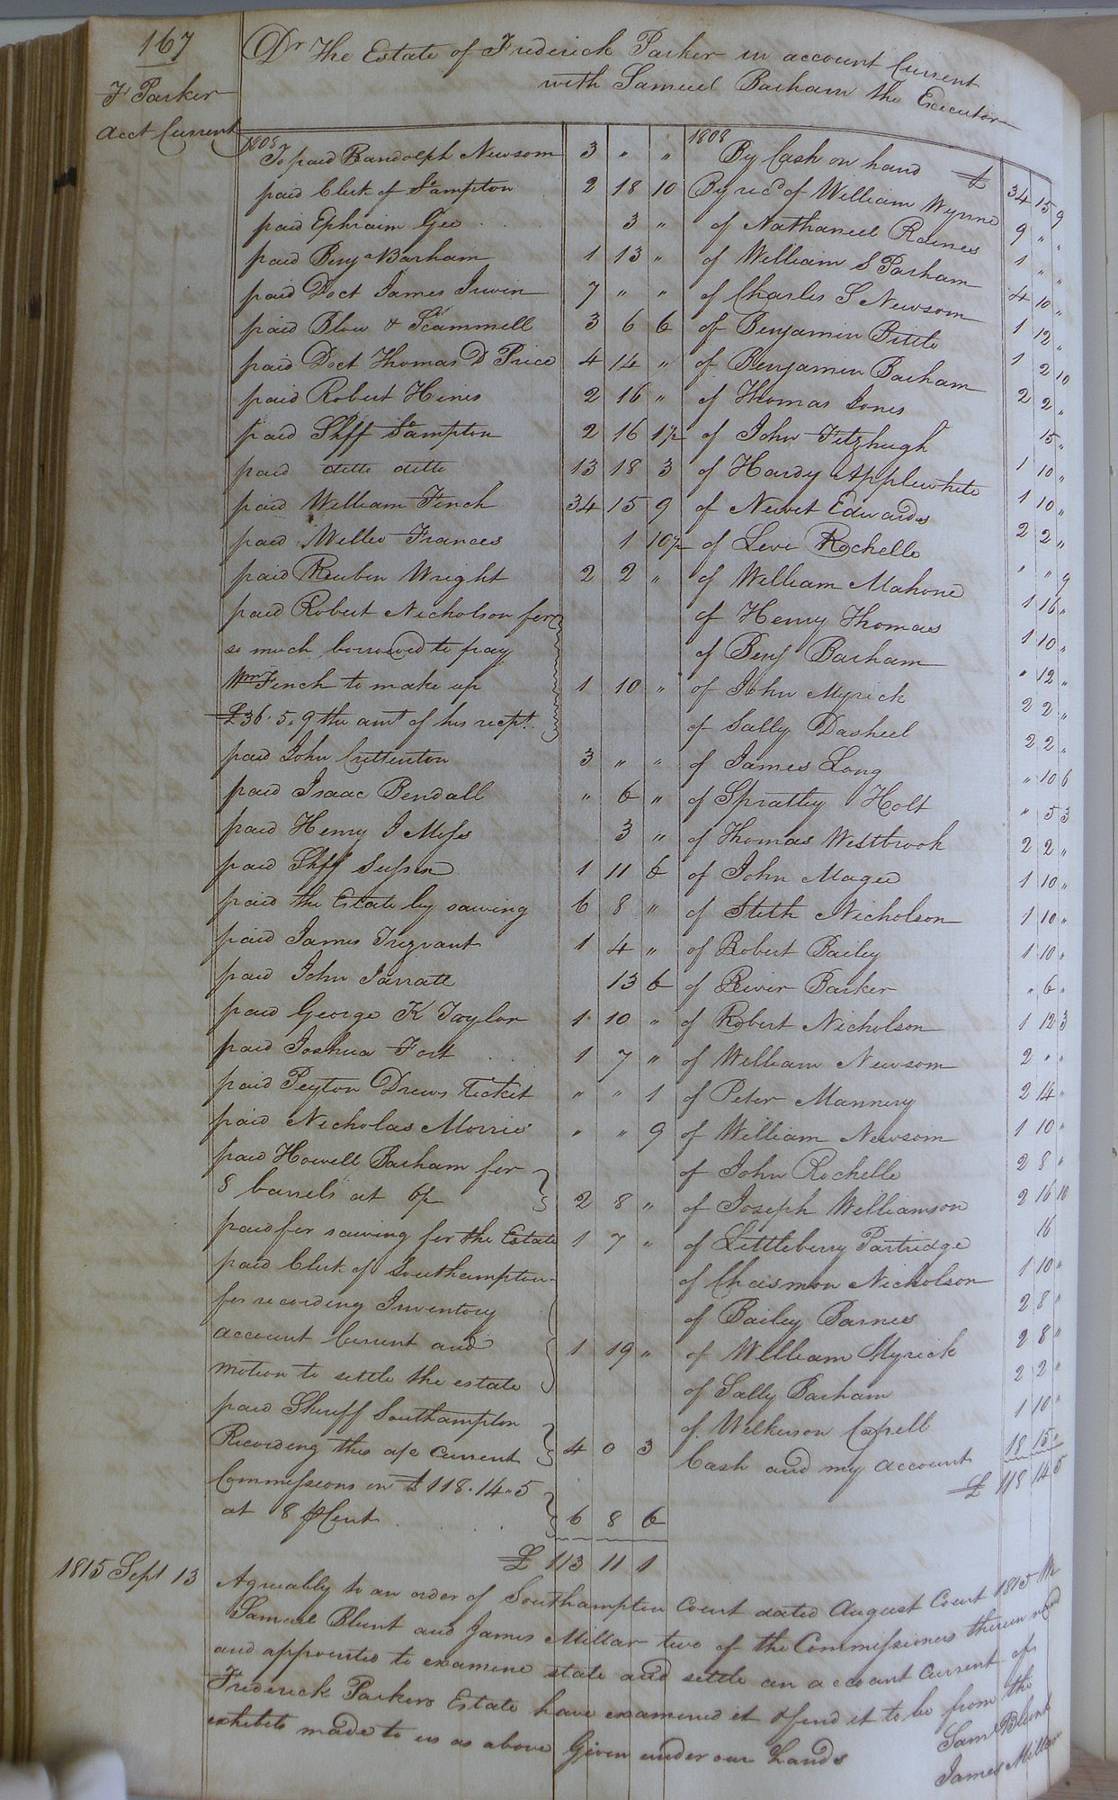 167
F Parker
acct Current
Dr The Estate of Frederick Parker in account Current
with Samuel Barham the Executor
1808
To paid Randolph Newsom 3 " "
paid Clerk of S'ampton 2 18 10
paid Ephraim Gee 3 "
paid Benja Barham 1 13 "
paid Doct James Irwin 7 " "
paid Blow & Scammell 3 6 6
paid Doct Thomas D Price 4 14 "
paid Robert Hines 2 16 "
paid Shff S'ampton 2 16 1½
paid ditto ditto 13 18 3
paid William Finch 34 15 9
paid Willie Frances 1 10½
paid Reuben Wright 2 2 "
paid Robert Nicholson for
so much borrowed to pay
Wm Finch to make up 1 10 "
£36.5.9 the amt of his recpt.
paid John Cuttenton 3 " "
paid Isaac Bendall " 6 "
paid Henry J Moss 3 "
paid Shff Sussex 1 11 6
paid the Estate by sawing 6 8 "
paid James Trezvant 1 4 "
paid John Jarratt 13 6
paid George K Taylor 1 10 "
paid Joshua Fort 1 7 "
paid Peyton Drews Ticket " " 1
paid Nicholas Morris " " 9
paid Howell Barham for
8 barrels at 6/ 2 8 "
paid for sawing for the Estate 1 7 "
paid Clerk of Southampton
for recording Inventory
account Current and 1 19 "
motion to settle the estate
paid Sheriff Southampton
Recording this a/c Current 4 0 3
Commissions on £118.14.5
at 8 pCent 6 8 6
£ 113 11 1
1808
By Cash on hand £ 34 15 9
By recd of William Wynne 9 " "
of Nathaniel Raines 1 " "
of William S Parham 4 10 "
of Charles S Newsom 1 12 "
of Benjamin Bittle 1 2 10
of Benjamin Barham 2 2 "
of Thomas Jones 15 "
of John Fitzhugh 1 10 "
of Hardy Applewhite 1 10 "
of Newit Edwards 2 2 "
of Levi Rochelle " " 9
of William Mahone 1 16 "
of Henry Thomas 1 10 "
of Benj Barham " 12 "
of John Myrick 2 2 "
of Sally Dasheil 2 2 "
of James Long " 10 6
of Spratley Holt " 5 3
of Thomas Westbrook 2 2 "
of John Magee 1 10 "
of Stith Nicholson 1 10 "
of Robert Bailey 1 10 "
of River Barker " 6 "
of Robert Nicholson 1 12 3
of William Newsom 2 " "
of Peter Mannery 2 14 "
of William Newsom 1 10 "
of John Rochelle 2 8 "
of Joseph Williamson 2 16 10
of Littleberry Partridge 16
of Chasmon Nicholson 1 10 "
of Bailey Barnes 2 8 "
of William Myrick 2 8 "
of Sally Barham 2 2 "
of Wilkinson Capell 1 10 "
Cash and my account 18 15 "
£ 118 14 5
1815 Sept 13
Agreeably to an order of Southampton Court dated August Court 1815 We
Samuel Blunt and James Millar two of the Commissioners therein
and appointed to examine state and settle an account Current of
Frederick Parkers Estate have examined it & find it to be from the
exhibits made to us as above Given under our hands
Saml Blunt
James Millar